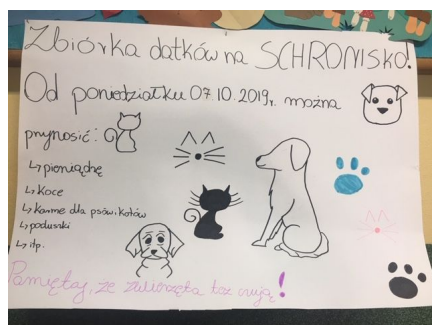 Zbiórka datków na SCHRONISKO!
Od poniedziałku 07.10.2019r. można
przynosić:
↳ pieniążki
↳ koce
↳ karmę dla psów i kotów
↳ poduszki
↳ itp.
Pamiętaj, że zwierzęta też czują!